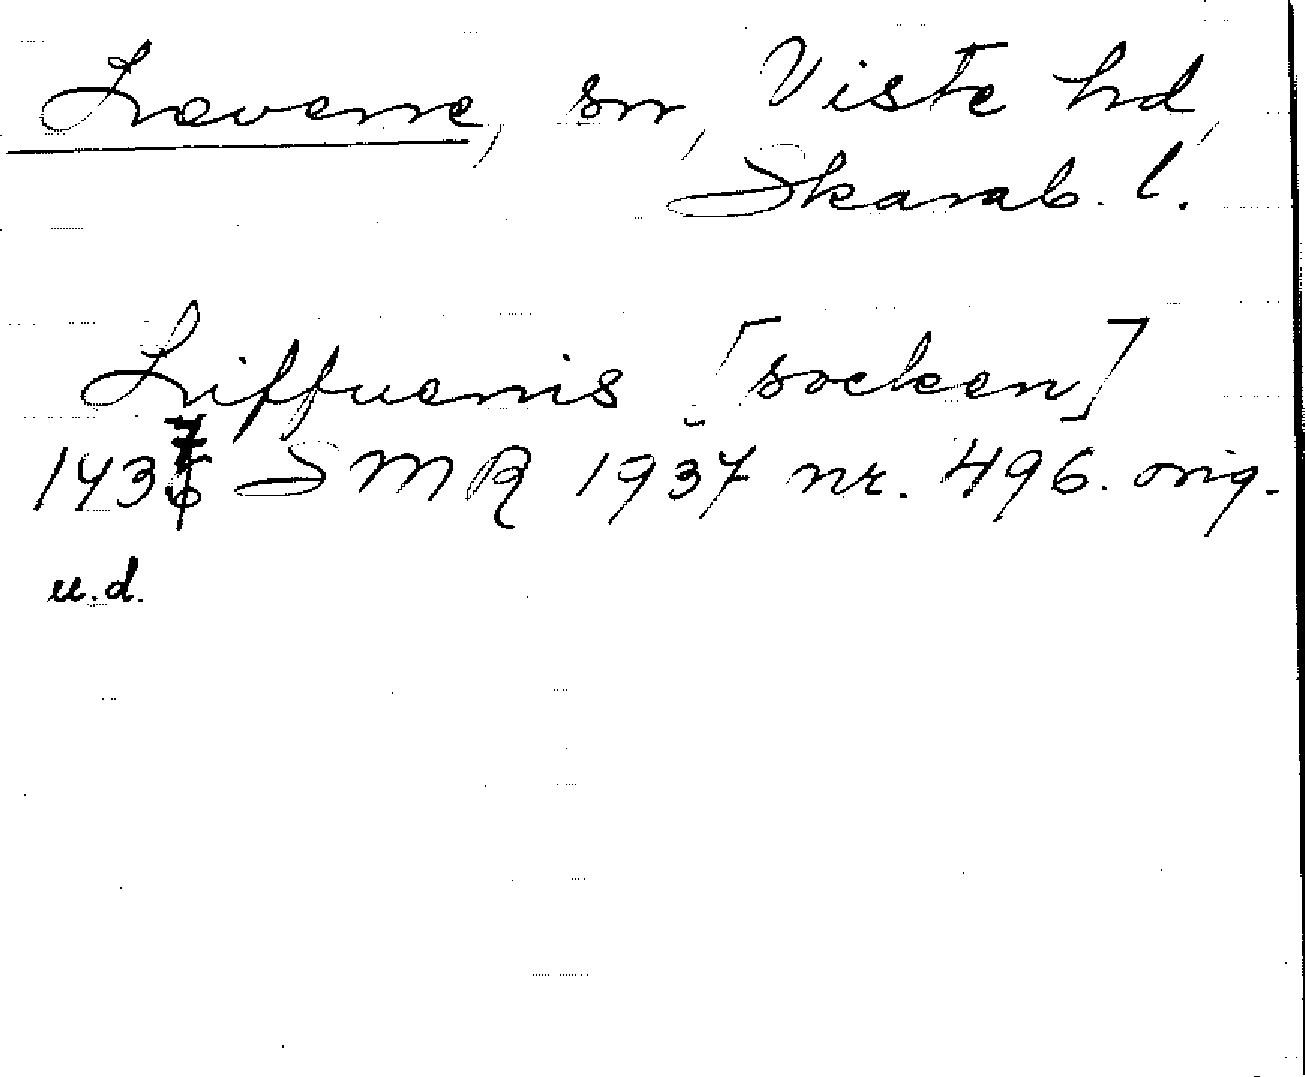 Levene, sn, Viste hd,
Skarab. l.
Liffuenis [socken]
1437 SMR 1937 nr. 496. orig.
u.d.